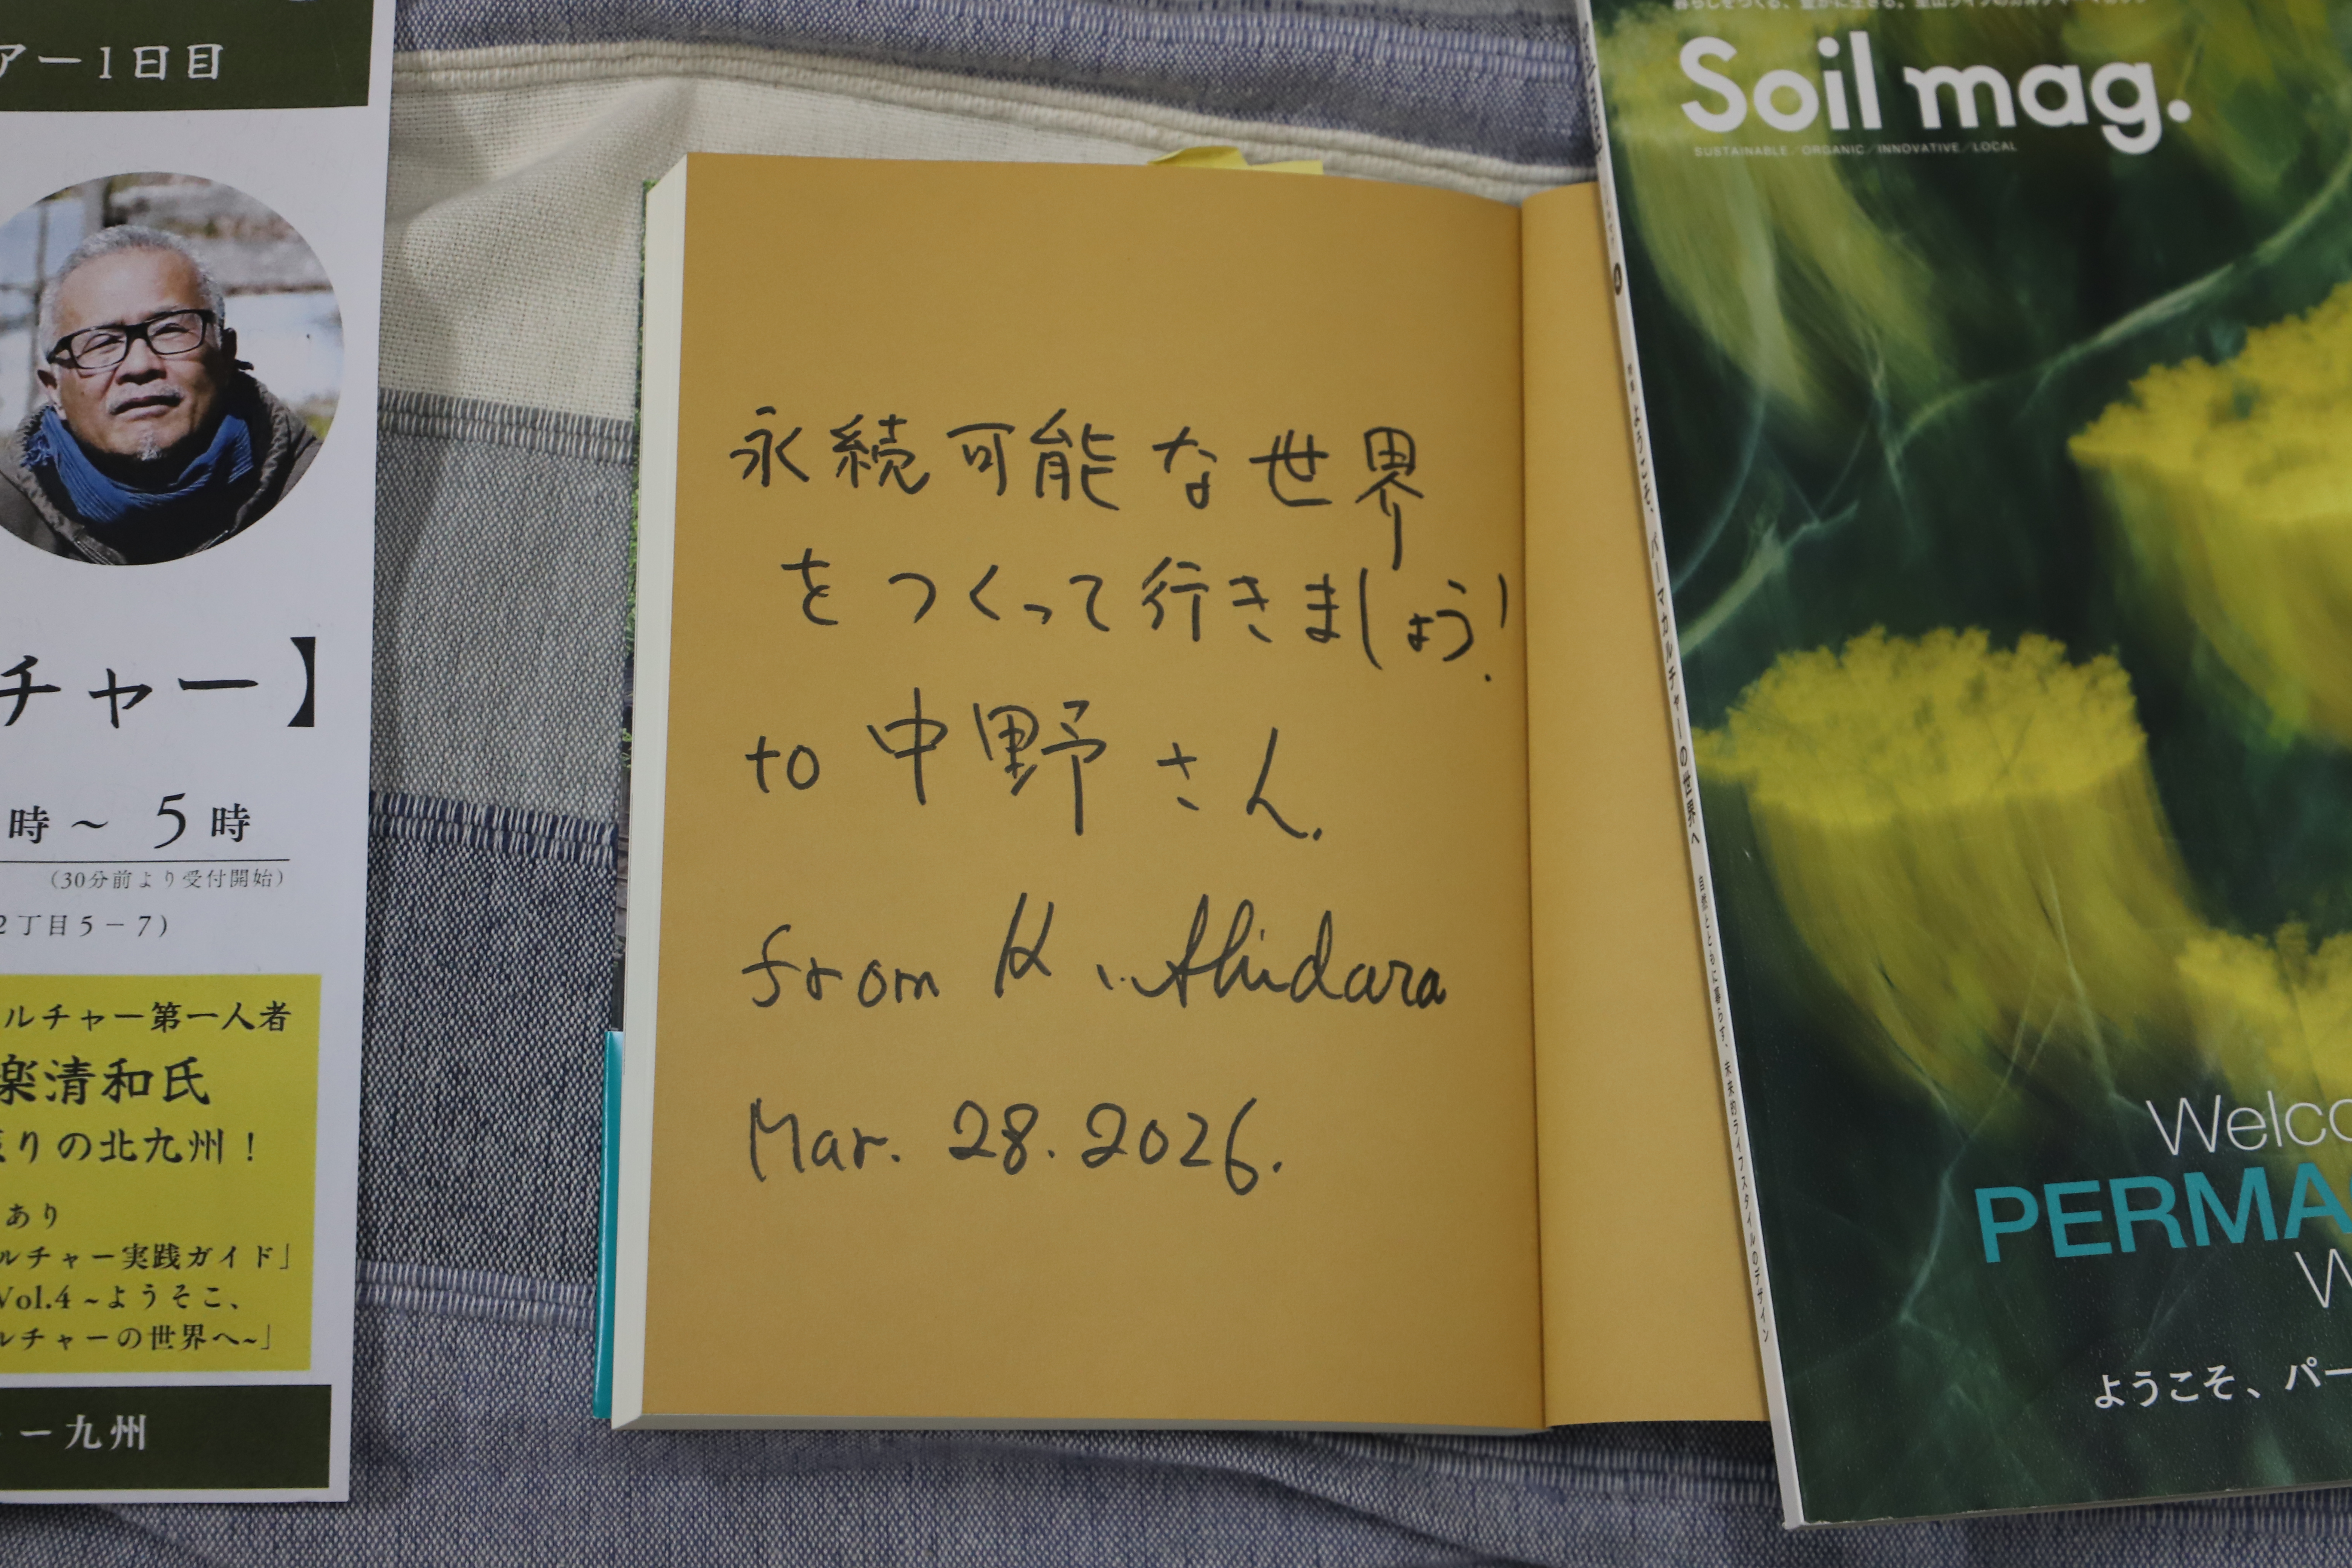 アー1日目
チャー】
時～5時
（30分前より受付開始）
2丁目5－7）
ルチャー第一人者
楽清和氏
りの北九州！
あり
ルチャー実践ガイド」
Vol.4 ~ようこそ、
ルチャーの世界へ~」
ー九州
永続可能な世界
をつくって行きましょう!
to 中野さん.
from K. Shidara
Mar. 28. 2026.
Soil mag.
SUSTAINABLE／ORGANIC／INNOVATIVE／LOCAL
ようこそ、パーマカルチャーの世界へ 自然とともに暮らす、未来的ライフスタイルのデザイン
Welco
PERMA
W
ようこそ、パー